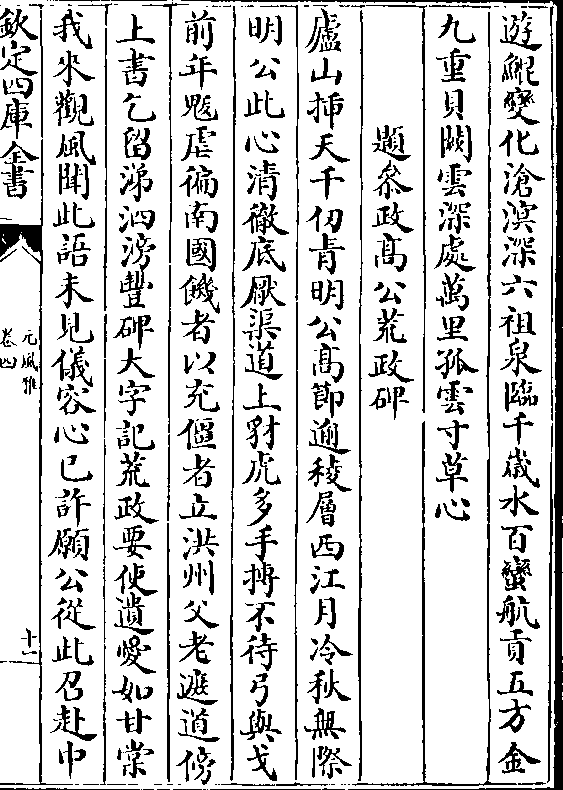 遊鯤變化滄溟深六祖泉臨千歲水百蠻航貢五方金
九重貝闕雲深處萬里孤雲寸草心
題叅政髙公荒政碑
廬山揷天千仞青明公髙節逾稜層西江月冷秋無際
明公此心清徹底厭渠道上豺虎多手搏不待弓與戈
前年䰡虐徧南國饑者以充僵者立洪州父老遮道傍
上書乞留涕泗滂豐碑大字記荒政要使遺愛如甘棠
我來觀風聞此語未見儀容心已許願公從此召赴中
欽定四庫全書
元風雅
卷四
十一